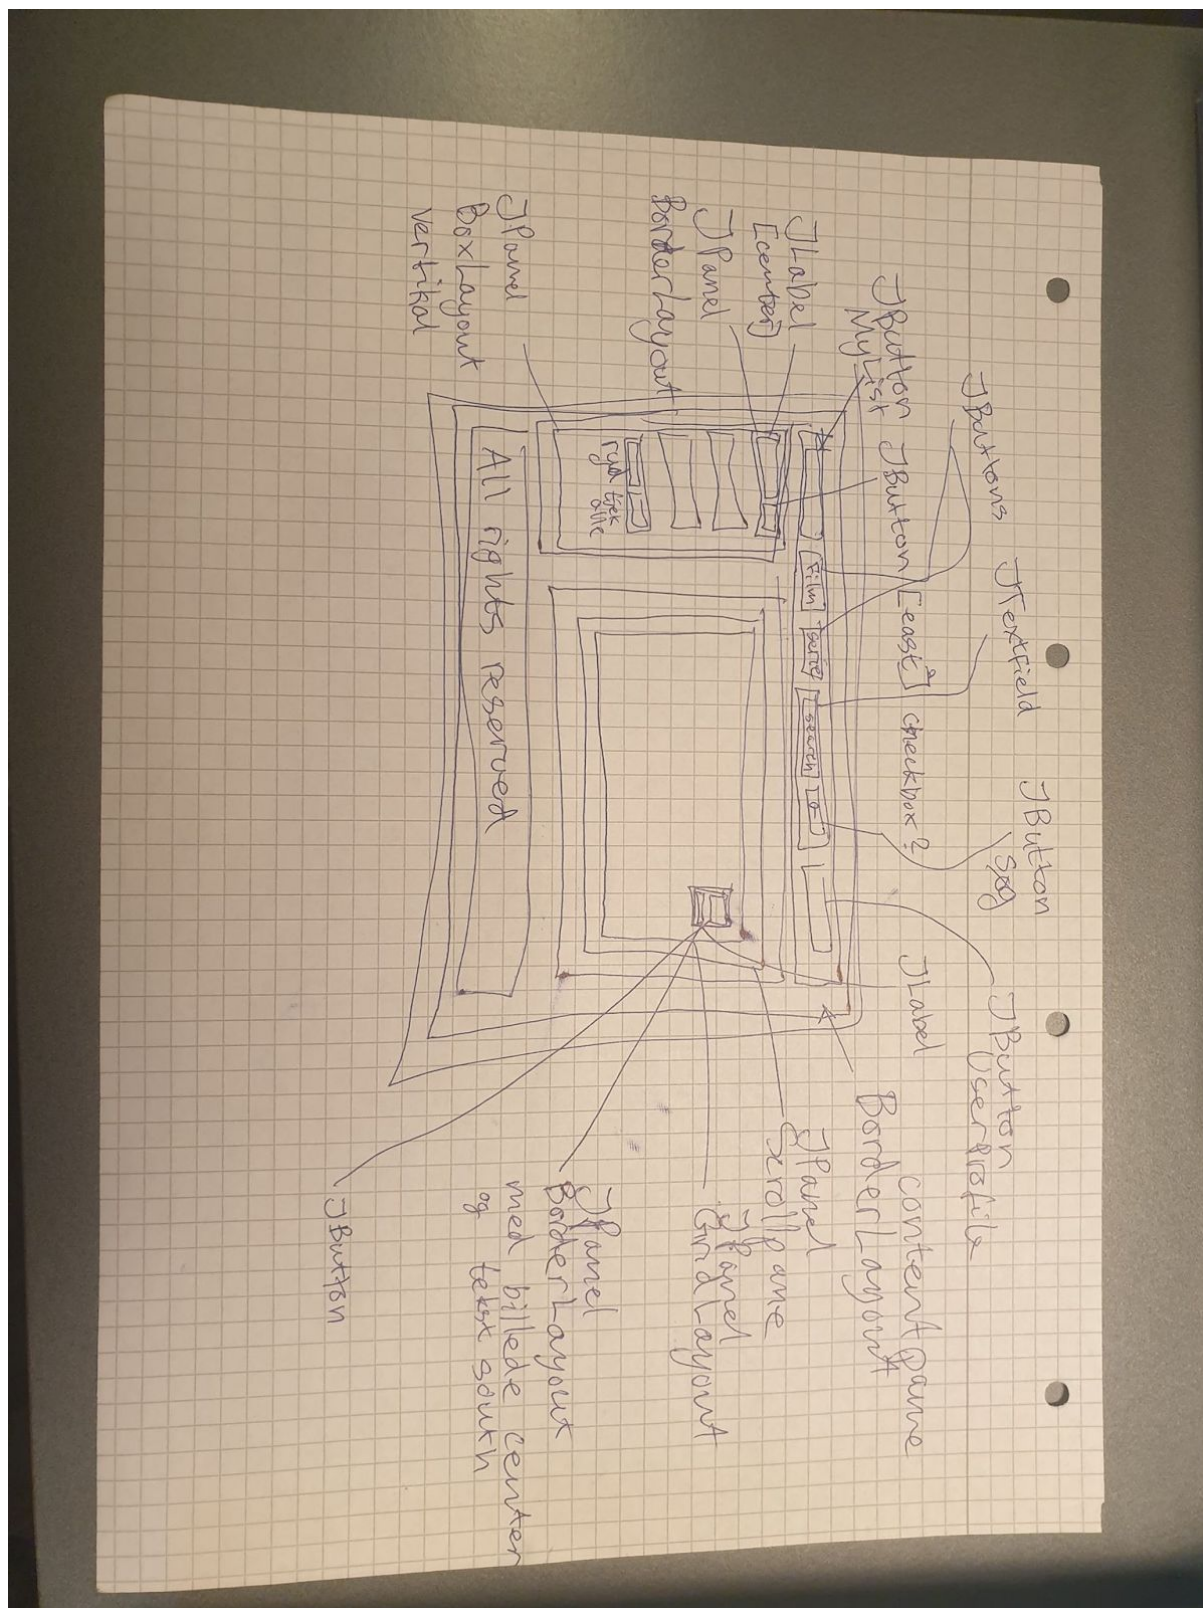 JButtons
JTextField
JButton
Søg
JButton
UserProfile
JButton
MyList
JButton [east] checkbox?
JLabel
contentpane
BorderLayout
JLabel
[center]
JPanel
BorderLayout
JPanel
BoxLayout
vertikal
Film
serie
search
ryd
tjek
alle
All rights reserved
JPanel
Scrollpane
JPanel
GridLayout
JPanel
BorderLayout
med billede center
og tekst south
JButton